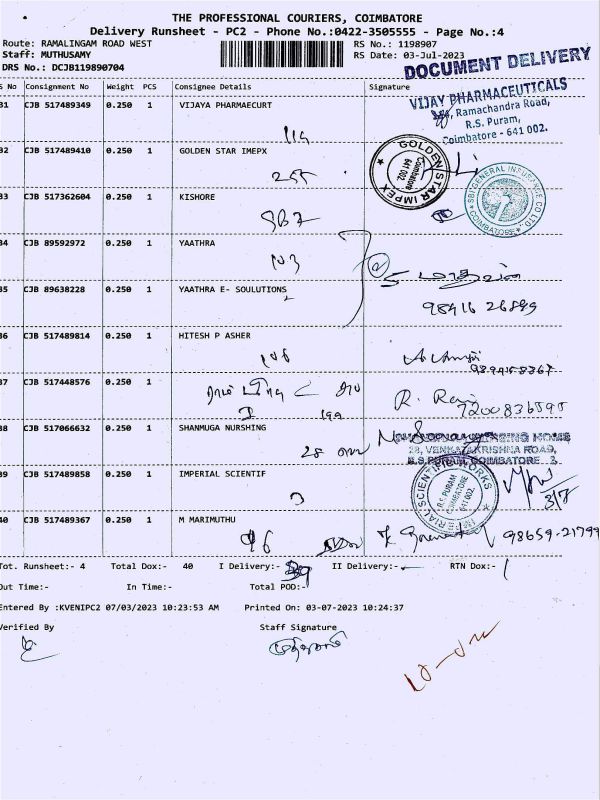 THE PROFESSIONAL COURIERS, COIMBATORE
Delivery Runsheet - PC2 - Phone No.:0422-3505555 - Page No.:4
Route: RAMALINGAM ROAD WEST RS No.: 1198907
Staff: MUTHUSAMY RS Date: 03-Jul-2023
DRS No.: DCJB119890704
DOCUMENT DELIVERY
S No Consignment No Weight PCS Consignee Details Signature
31 CJB 517489349 0.250 1 VIJAYA PHARMAECURT
VIJAY PHARMACEUTICALS
Ramachandra Road,
R.S. Puram,
Coimbatore - 641 002.
119
32 CJB 517489410 0.250 1 GOLDEN STAR IMEPX
255
GOLDEN STAR IMPEX
Coimbatore
641 002.
SBI GENERAL INSURANCE CO. LTD
COIMBATORE
33 CJB 517362604 0.250 1 KISHORE
34 CJB 89592972 0.250 1 YAATHRA
35 CJB 89638228 0.250 1 YAATHRA E- SOULUTIONS
98416 26899
36 CJB 517489814 0.250 1 HITESH P ASHER
37 CJB 517448576 0.250 1
R. Ravi
38 CJB 517066632 0.250 1 SHANMUGA NURSHING
28
NURSING HOME
28, VENKATAKRISHNA ROAD,
R.S.PURAM, COIMBATORE - 2.
39 CJB 517489858 0.250 1 IMPERIAL SCIENTIF
IMPERIAL SCIENTIFIC WORKS
R.S. PURAM
COIMBATORE
641 002.
3/7
40 CJB 517489367 0.250 1 M MARIMUTHU
96
98659-21799
Tot. Runsheet:- 4 Total Dox:- 40 I Delivery:- 39 II Delivery:- RTN Dox:- 1
Out Time:- In Time:- Total POD:-
Entered By :KVENIPC2 07/03/2023 10:23:53 AM Printed On: 03-07-2023 10:24:37
Verified By Staff Signature